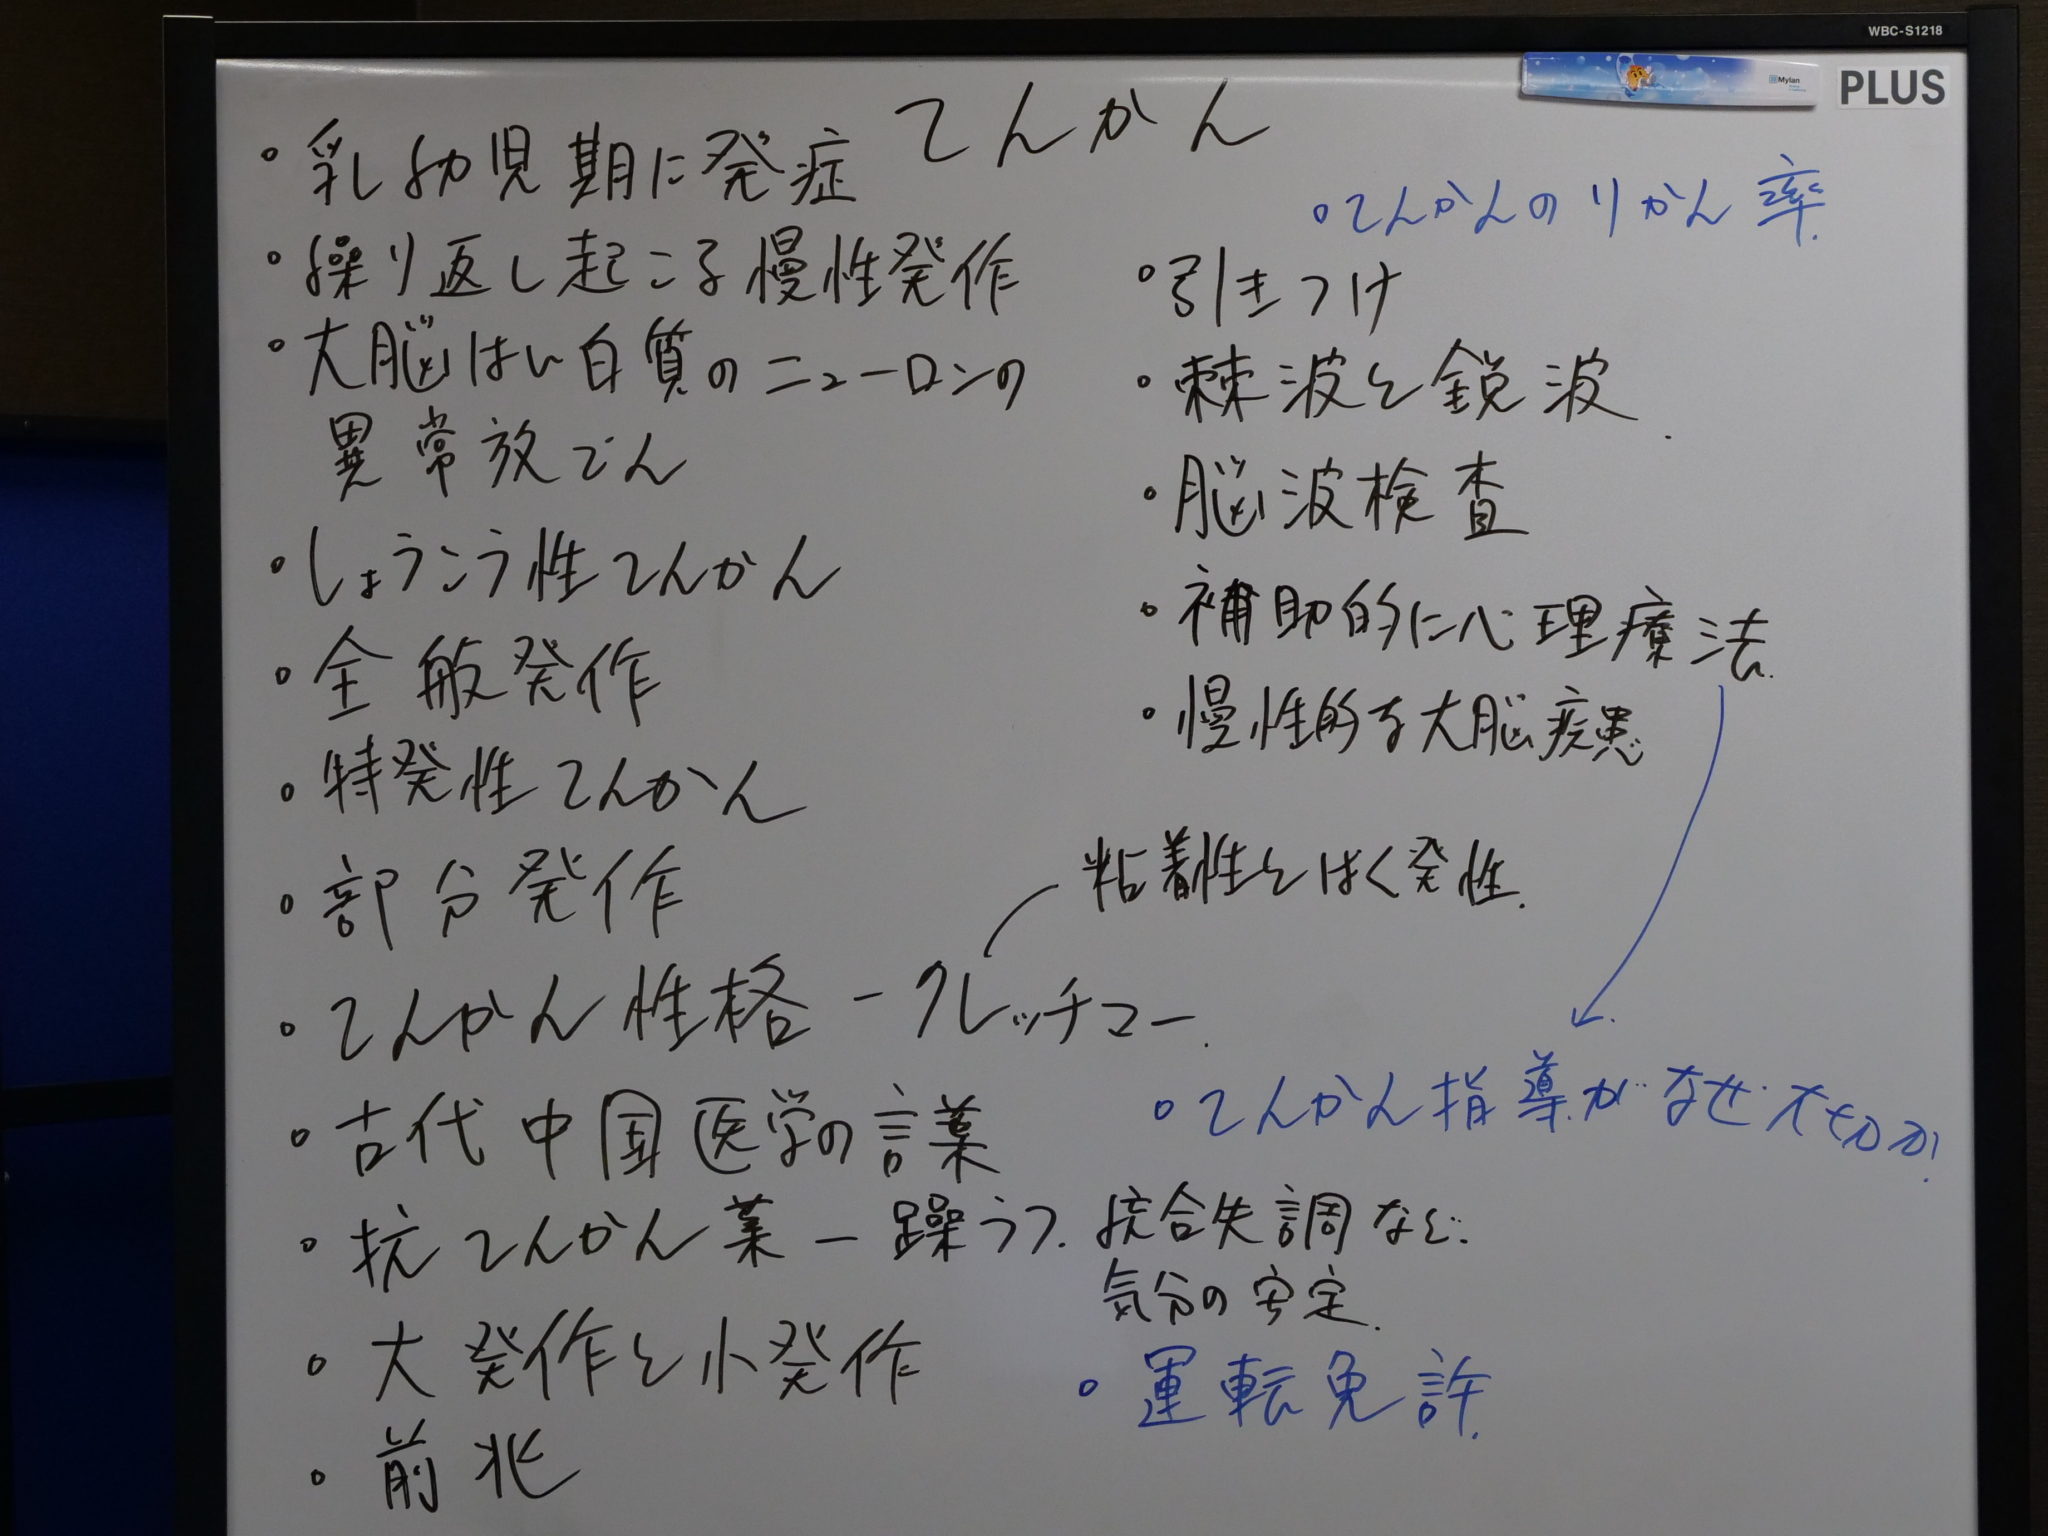 WBC-S1218
Mylan
PLUS
てんかん
・乳幼児期に発症
・繰り返し起こる慢性発作
・大脳はい白質のニューロンの
異常放でん
・しょうこう性てんかん
・全般発作
・特発性てんかん
・部分発作
・てんかん性格ークレッチマー.
・古代中国医学の言葉
・抗てんかん薬ー躁うつ.統合失調など.
気分の安定.
・大発作と小発作
・前兆
・てんかんのりかん率.
・引きつけ
・棘波と鋭波.
・脳波検査
・補助的に心理療法.
・慢性的な大脳疾患
粘着性とばく発性.
・てんかん指導がなぜ大切か.
・運転免許.